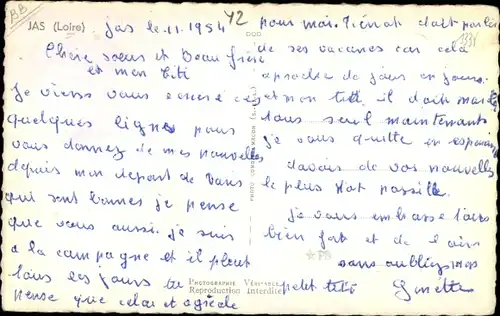 BB
JAS (Loire)
jas le 11 1954
42
1331
Chère sœurs et Beau frère
et mon titi
je viens vous écrire ces
quelques lignes pour
vous donnez de mes nouvelles
depuis mon depart de vous
qui sont bonnes je pense
que vous aussi. je suis
a la campagne et il pleut
tous les jours tu
pense que cela et agréele
pour moi.
de ses vacances car cela
aproche de jours en jours.
et mon titi il doit
tous seul maintenant
je vous quitte en esperan
davois de vos nouvelles
le plus tot possible.
je vous embrasse tous
bien fort et de
sans oubliez mon
petit titi Ginette
PHOTOGRAPHIE VÉRITABLE
Reproduction Interdite